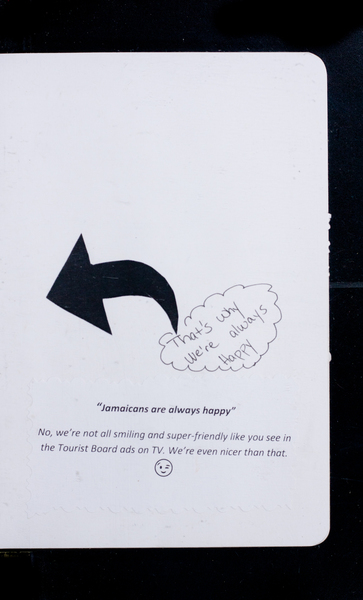 That's why
We're always
Happy
"Jamaicans are always happy"
No, we're not all smiling and super-friendly like you see in
the Tourist Board ads on TV. We're even nicer than that.